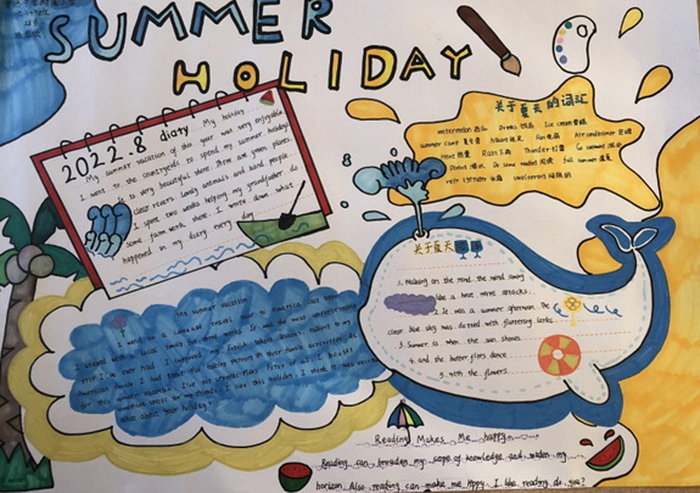 SUMMER
HOLIDAY
2022.8 diary My holiday
My summer vacation of this year was very enjoyable
I went to the countryside to spend my summer holidays
It is very beautiful there There are green plants,
clear rivers lovely animals and kind people.
I spent two weeks helping my grandfather do
some farm work there. I wrote down what
happened in my diary every day
关于夏天的词汇
watermelon 西瓜 Drinks 饮品 Ice cream 雪糕
summer camp 夏令营 Fan 电扇 Air conditioner 空调
Heat 热量 Rain 下雨 Thunder 打雷 Go swimming 游泳
Sweat Do some reading 阅读 full summer 盛夏
关于夏天
1. Walking on the road, the wind
like a heat wave attacks.
2. It was a summer afternoon. The
clear blue sky was dotted with fluttering larks
3. Summer is when the sun shines
4. and the butterflies dance
5. with the flowers.
My summer vacation
I went on a language travel tour to America last
I stayed with a local family for three weeks. It was the most unforgettable
trip I've ever had. I improved my English talked to my
American family I had great fun taking part in their family activities
for this summer vacation. I've got several
American for my friends. I like this holiday. I think it was
what about your holiday?
Reading Makes Me happy
Reading can broaden my scope of knowledge and widen my
horizon. Also reading can make me happy. I like reading do you?